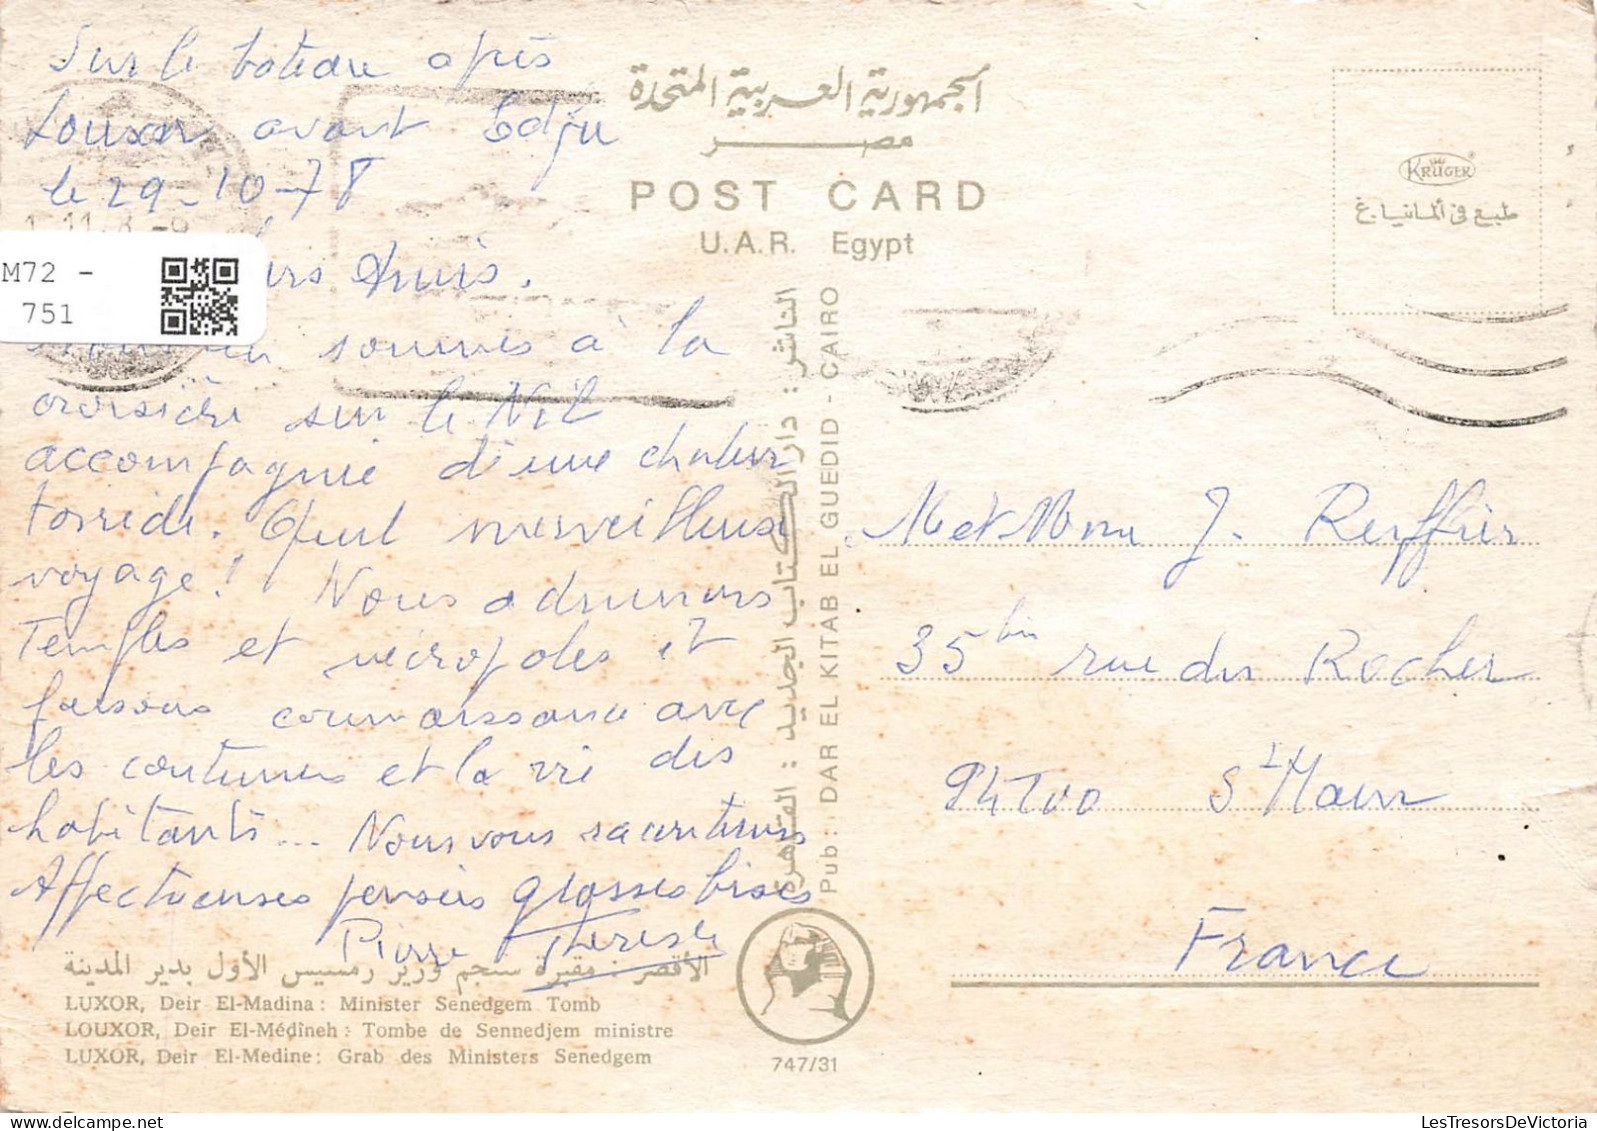 Sur le bateau après
Louxor avant Edfu
le 29-10-78
M72 -
751
Amis.
sommes à la
croisière sur le Nil
accompagnie d'une chaleur
torride. Quel merveilleux
voyage! Nous admirons
Temples et nécropoles et
faisons connaissance avec
les coutumes et la vie des
habitants... Nous vous raconterons
Affectueuses pensées grosses bises
Pierre Therese
الجمهورية العربية المتحدة
مصر
POST CARD
U.A.R. Egypt
KRÜGER
طبع فى ألمانيا.غ
الناشر : دار الكتاب الجديد : القاهرة
Pub : DAR EL KITAB EL GUEDID - CAIRO
M et Mme J. Reyffier
35 bis rue du Rocher
94700 St Maur
France
الأقصر : مقبرة سنجم وزير رمسيس الأول بدير المدينة
LUXOR, Deir El-Madina: Minister Senedgem Tomb
LOUXOR, Deir El-Médîneh: Tombe de Sennedjem ministre
LUXOR, Deir El-Medine: Grab des Ministers Senedgem
747/31
LesTresorsDeVictoria